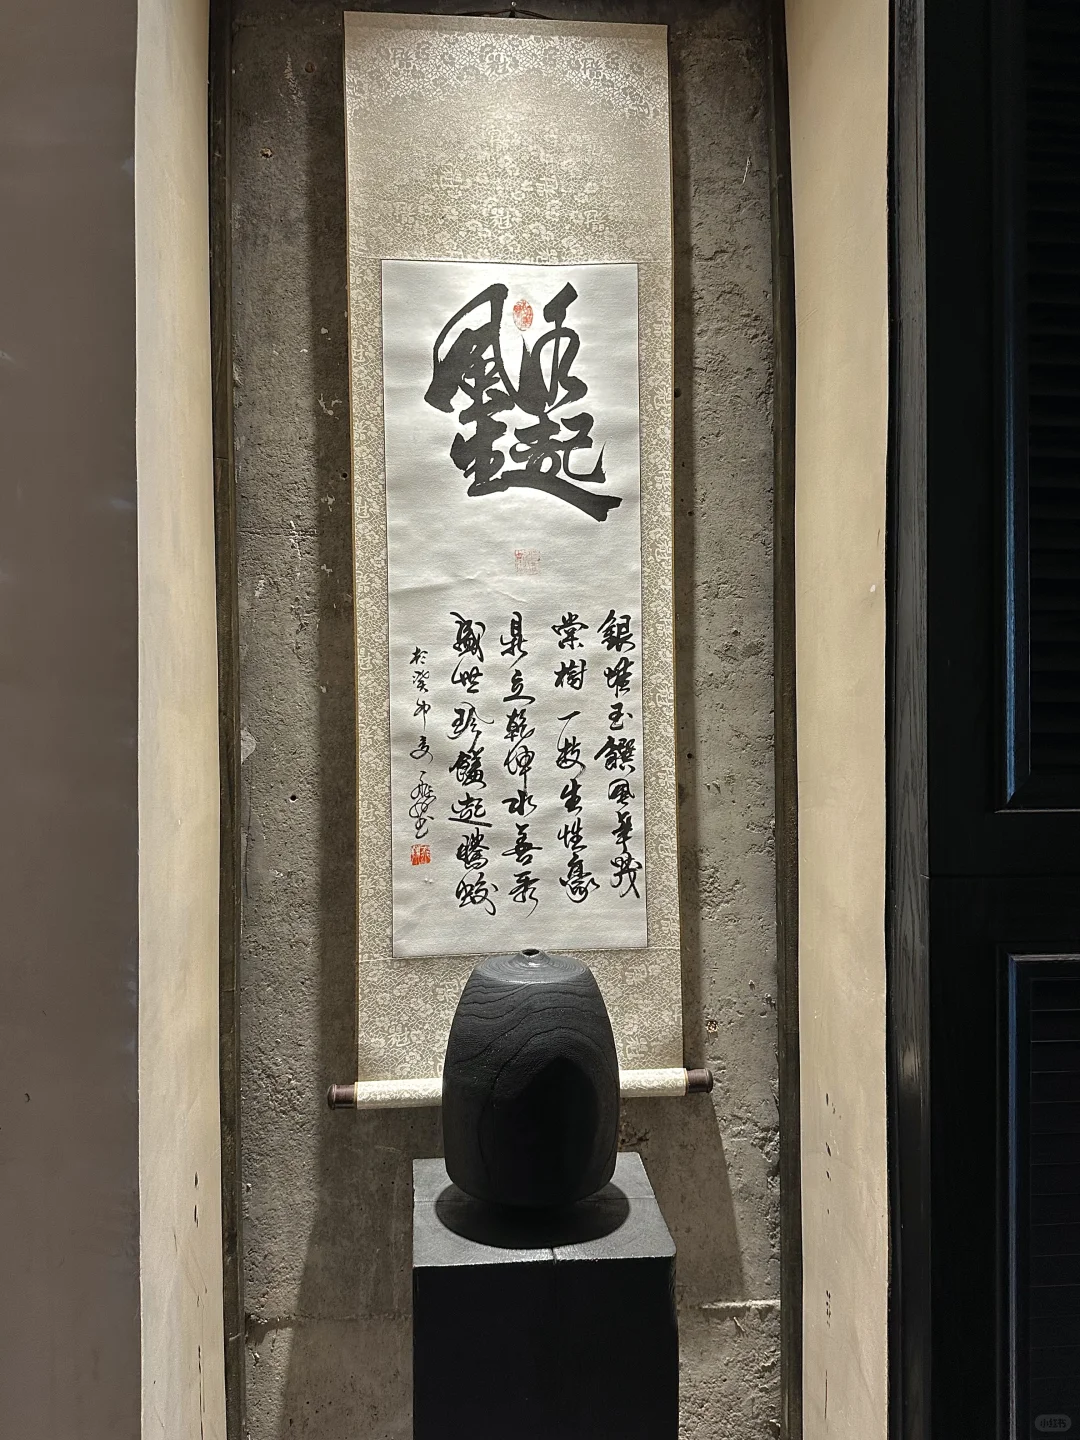 水起
風生
銀堆玉饌風華茂
棠樹一枝生性豪
鼎立乾坤水善柔
盛世珍饈起騰蛟
於癸卯夏
小红书